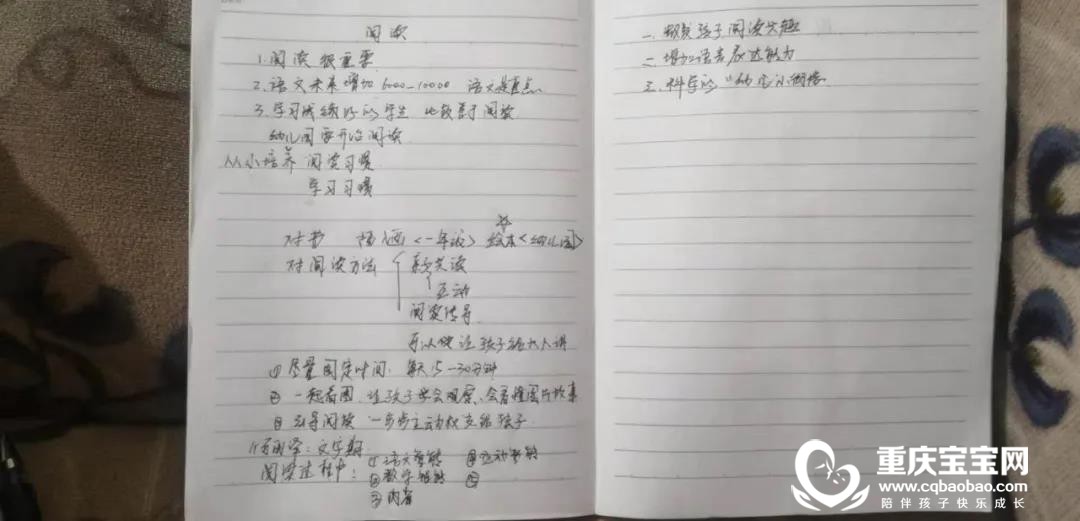 阅读
1.阅读很重要
2.语文未来增加6000-10000 语文是重点
3.学习成绩好的学生 比较善于阅读
幼儿园要开始阅读
从小培养 阅读习惯
学习习惯
对书 <一年级> 绘本<幼儿园>
对阅读方法 亲子共读
互动
阅读
可以 让孩子给大人讲
① 尽量固定时间 每天15-30分钟
② 一起看图 让孩子学会观察、会看懂图片故事
③ 引导阅读 一步步主动权交给孩子
文字期
阅读过程中: ① 语文智能 ④ 运动智能
② 数学智能 ⑤
③ 内省
一、激发孩子阅读兴趣
二、增加语言表达能力
三、科学的
重庆宝宝网
www.cqbaobao.com
陪伴孩子快乐成长